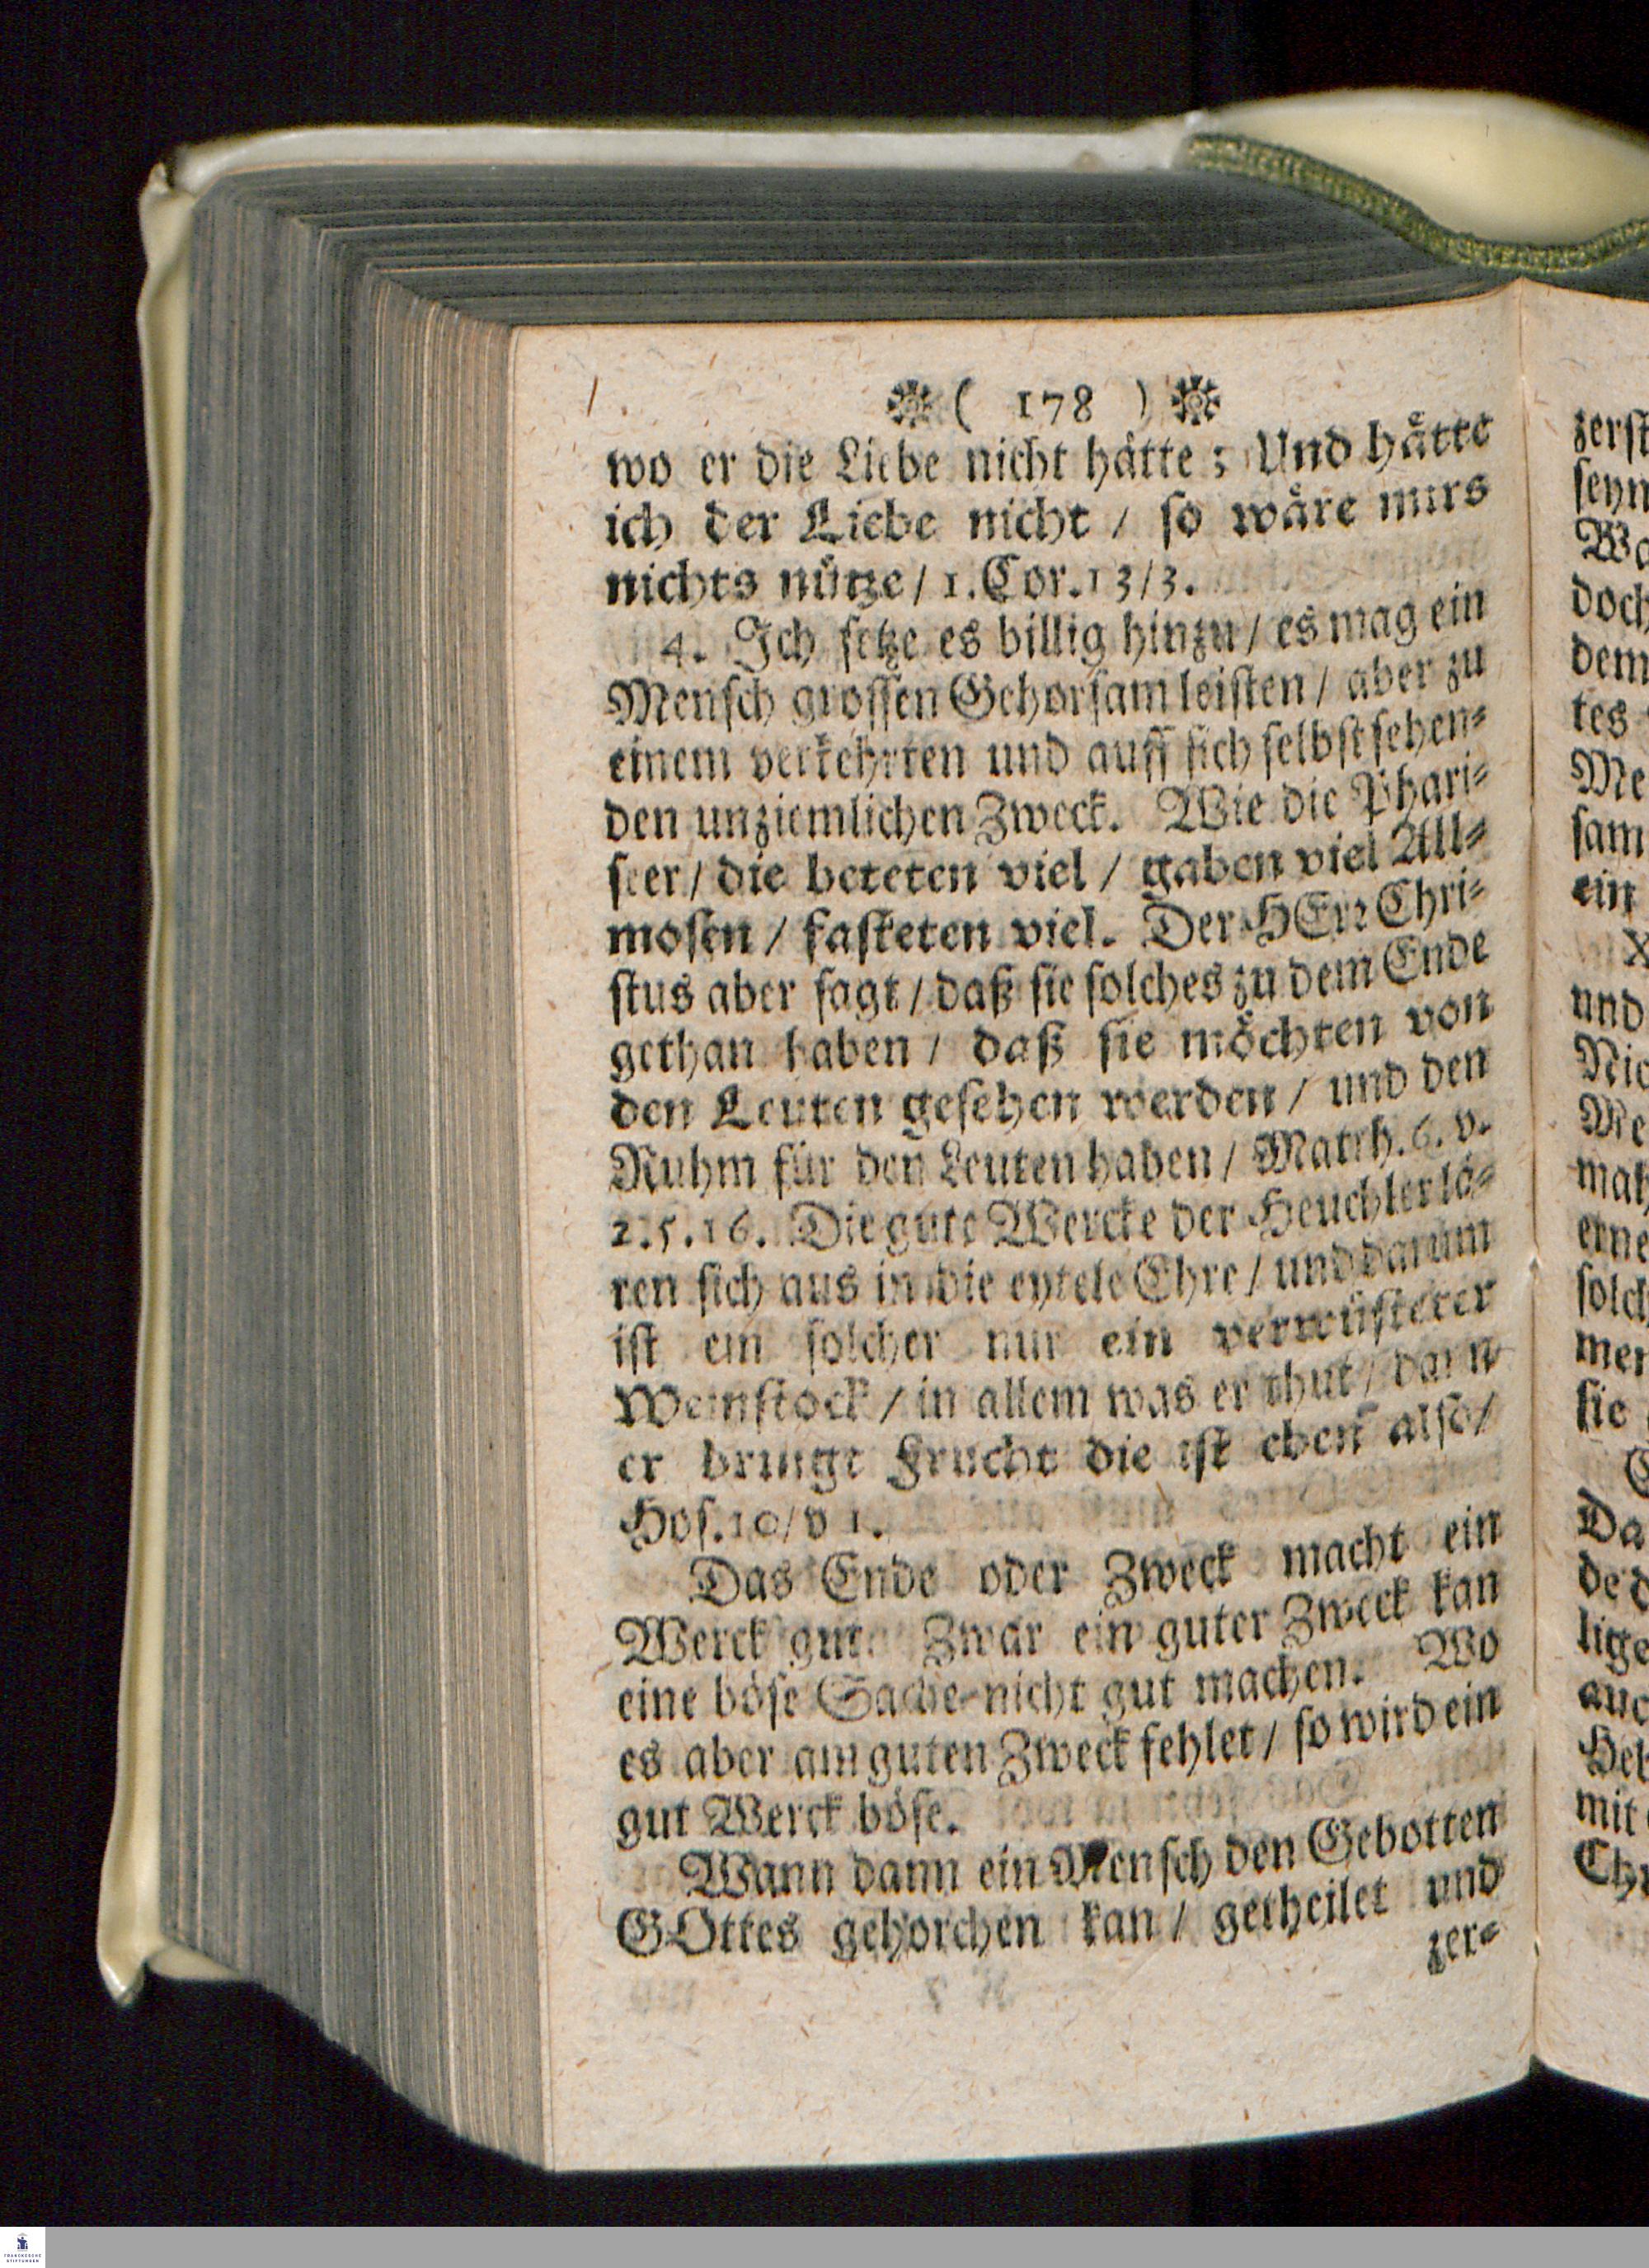 ( 178 )
wo er die Liebe nicht hätte; Und hätte
ich der Liebe nicht / so wäre mirs
nichts nütze / 1. Cor. 13/3.
4. Ich setze es billig hinzu / es mag ein
Mensch grossen Gehorsam leisten / aber zu
einem verkehrten und auff sich selbst sehen-
den unziemlichen Zweck. Wie die Phari-
seer / die beteten viel / gaben viel All-
mosen / fasteten viel. Der HErr Chri-
stus aber sagt / daß sie solches zu dem Ende
gethan haben / daß sie möchten von
den Leuten gesehen werden / und den
Ruhm für den Leuten haben / Matth. 6. v.
2. 5. 16. Die gute Wercke der Heuchler lä-
ren sich aus in die eytele Ehre / und darum
ist ein solcher nur ein verwüsteter
Weinstock / in allem was er thut / dann
er bringt Frucht die ist eben also /
Hos. 10/v 1.
Das Ende oder Zweck macht ein
Werck gut. Zwar ein guter Zweck kan
eine böse Sache nicht gut machen. Wo
es aber am guten Zweck fehlet / so wird ein
gut Werck böse.
Wann dann ein Mensch den Gebotten
GOttes gehorchen kan / getheilet und
zer-
zerst
seyn
Wa
doch
dem
tes
Me
sam
ein
und
Nic
Me
mah
erne
solch
mer
sie
Da
de d
lige
auc
Heb
mit
Chr
FRANCKESCHE
STIFTUNGEN